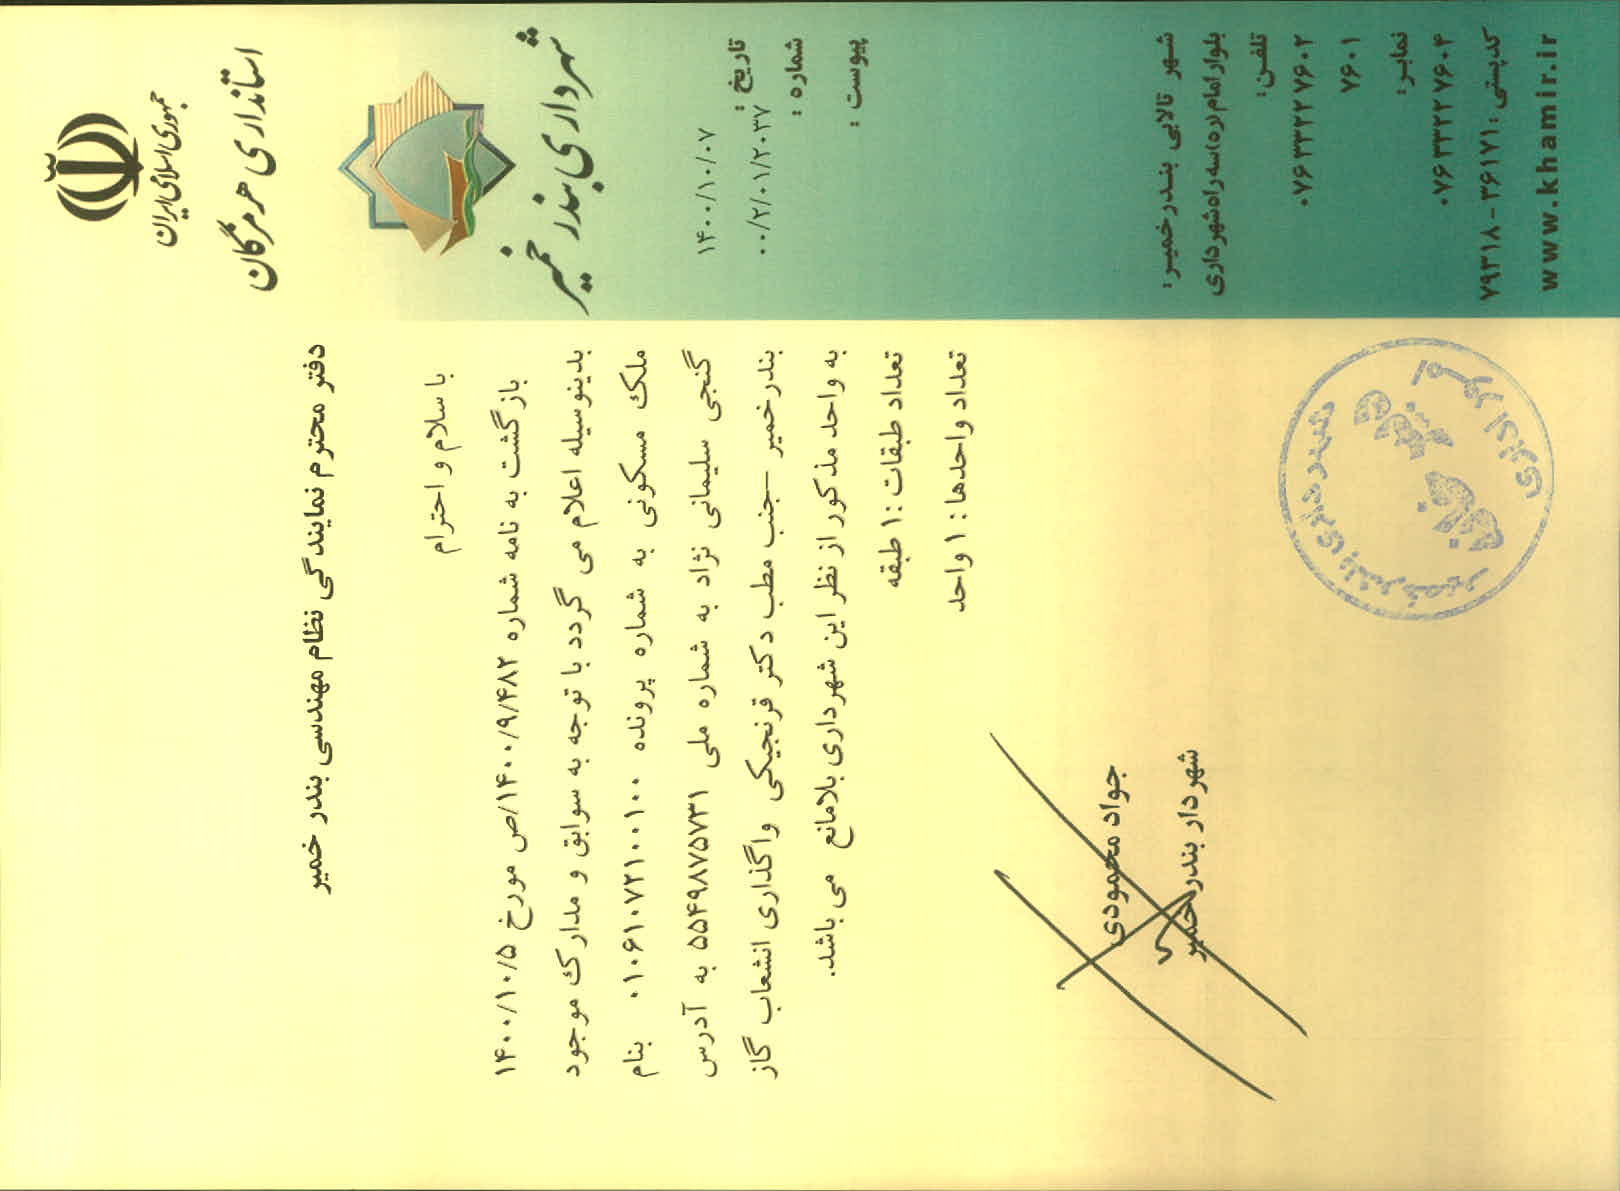 جمهوری اسلامی ایران
استانداری هرمزگان
شهرداری بندر خمیر
تاریخ : ۱۴۰۰/۱۰/۰۷
شماره : ۰۰/۲/۰۱/۲۰۳۷
پیوست :
دفتر محترم نمایندگی نظام مهندسی بندر خمیر
با سلام و احترام
بازگشت به نامه شماره ۱۴۰۰/۹/۴۸۲/ص مورخ ۱۴۰۰/۱۰/۵
بدینوسیله اعلام می گردد با توجه به سوابق و مدارک موجود
ملک مسکونی به شماره پرونده ۰۱۰۶۱۰۷۲۱۰۰۱۰۰ بنام
گنجی سلیمانی نژاد به شماره ملی ۵۵۴۹۸۷۵۷۳۱ به آدرس
بندرخمیر –جنب مطب دکتر قرنجیکی واگذاری انشعاب گاز
به واحد مذکور از نظر این شهرداری بلامانع می باشد.
تعداد طبقات :۱ طبقه
تعداد واحدها : ۱ واحد
جواد محمودی
شهردار بندرخمیر
شهرداری بندر خمیر
دبیرخانه
امور اداری
شهر تالابی بندرخمیر:
بلوار امام (ره) سه راه شهرداری
تلفن:
۰۷۶۳۳۲۲۷۶۰۲
۷۶۰۱
نمابر:
۰۷۶۳۳۲۲۷۶۰۴
کدپستی: ۳۶۱۷۱ - ۷۹۳۱۸
www.khamir.ir